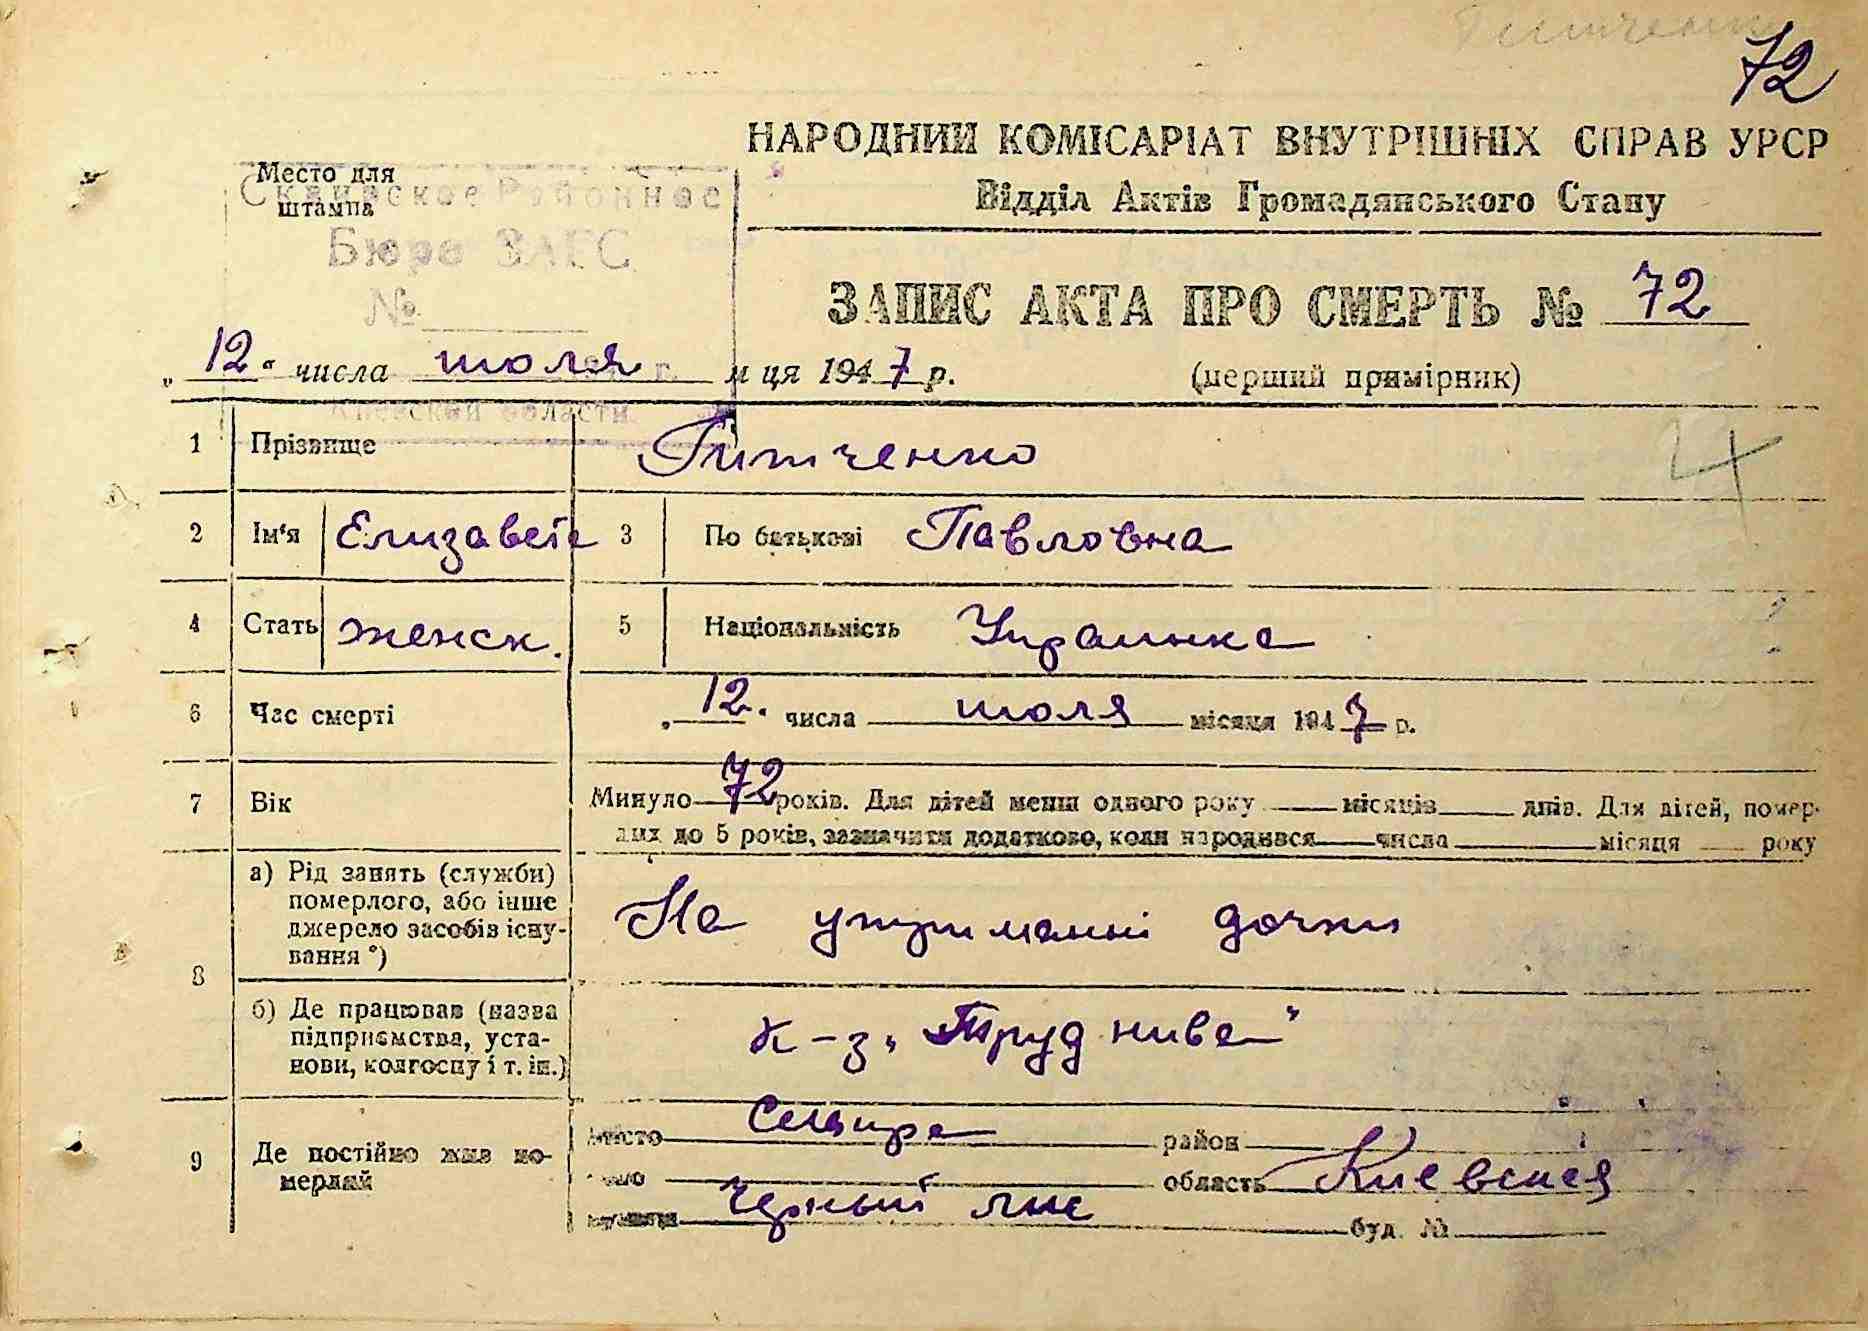 72
НАРОДНИЙ КОМІСАРІАТ ВНУТРІШНІХ СПРАВ УРСР
Відділ Актів Громадянського Стану
Место для
штампа
Сквирское Районное
Бюро ЗАГС
№
Киевской области
ЗАПИС АКТА ПРО СМЕРТЬ № 72
„12“ числа июля м ця 1947 р.
(перший примірник)
1 Прізвище Гитченко
2 Ім'я Елизавета 3 По батькові Павловна
4 Стать женск. 5 Національність Украинка
6 Час смерті „12.“ числа июля місяця 1947 р.
7 Вік Минуло 72 років. Для дітей менш одного року місяців днів. Для дітей, помер-
лих до 5 років, зазначити додатково, коли народився числа місяця року
8 а) Рід занять (служби)
померлого, або інше
джерело засобів існу-
вання *)
На утриманні дочки
б) Де працював (назва
підприємства, уста-
нови, колгоспу і т. ін.)
к-з „Труд нива"
9 Де постійно жив по-
мерлий
місто Сквира район
область Киевская
Черный буд. №